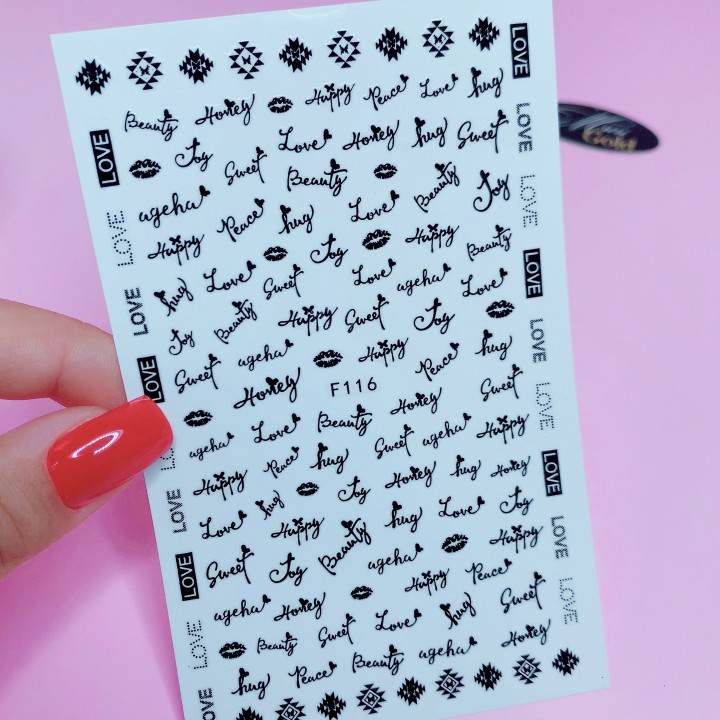 LOVE
Beauty Honey Happy Peace Love hug
LOVE Joy Sweet Love Honey hug Sweet LOVE
ageha Beauty Love Beauty Joy LOVE
LOVE Happy Peace hug Joy Happy Beauty
hug Love Sweet Love ageha Love LOVE
LOVE Joy Beauty Happy Sweet Joy
Sweet ageha Happy Peace hug LOVE
LOVE Honey F116 Honey Sweet LOVE
ageha Love Beauty Sweet ageha Happy
Happy Peace hug Honey hug Honey LOVE
LOVE Love hug Happy Joy hug Love Joy
LOVE Sweet Joy Beauty ageha Happy LOVE
ageha Honey Happy Peace Sweet LOVE
LOVE Beauty Sweet Love hug Honey
LOVE hug Peace Beauty ageha
Gold